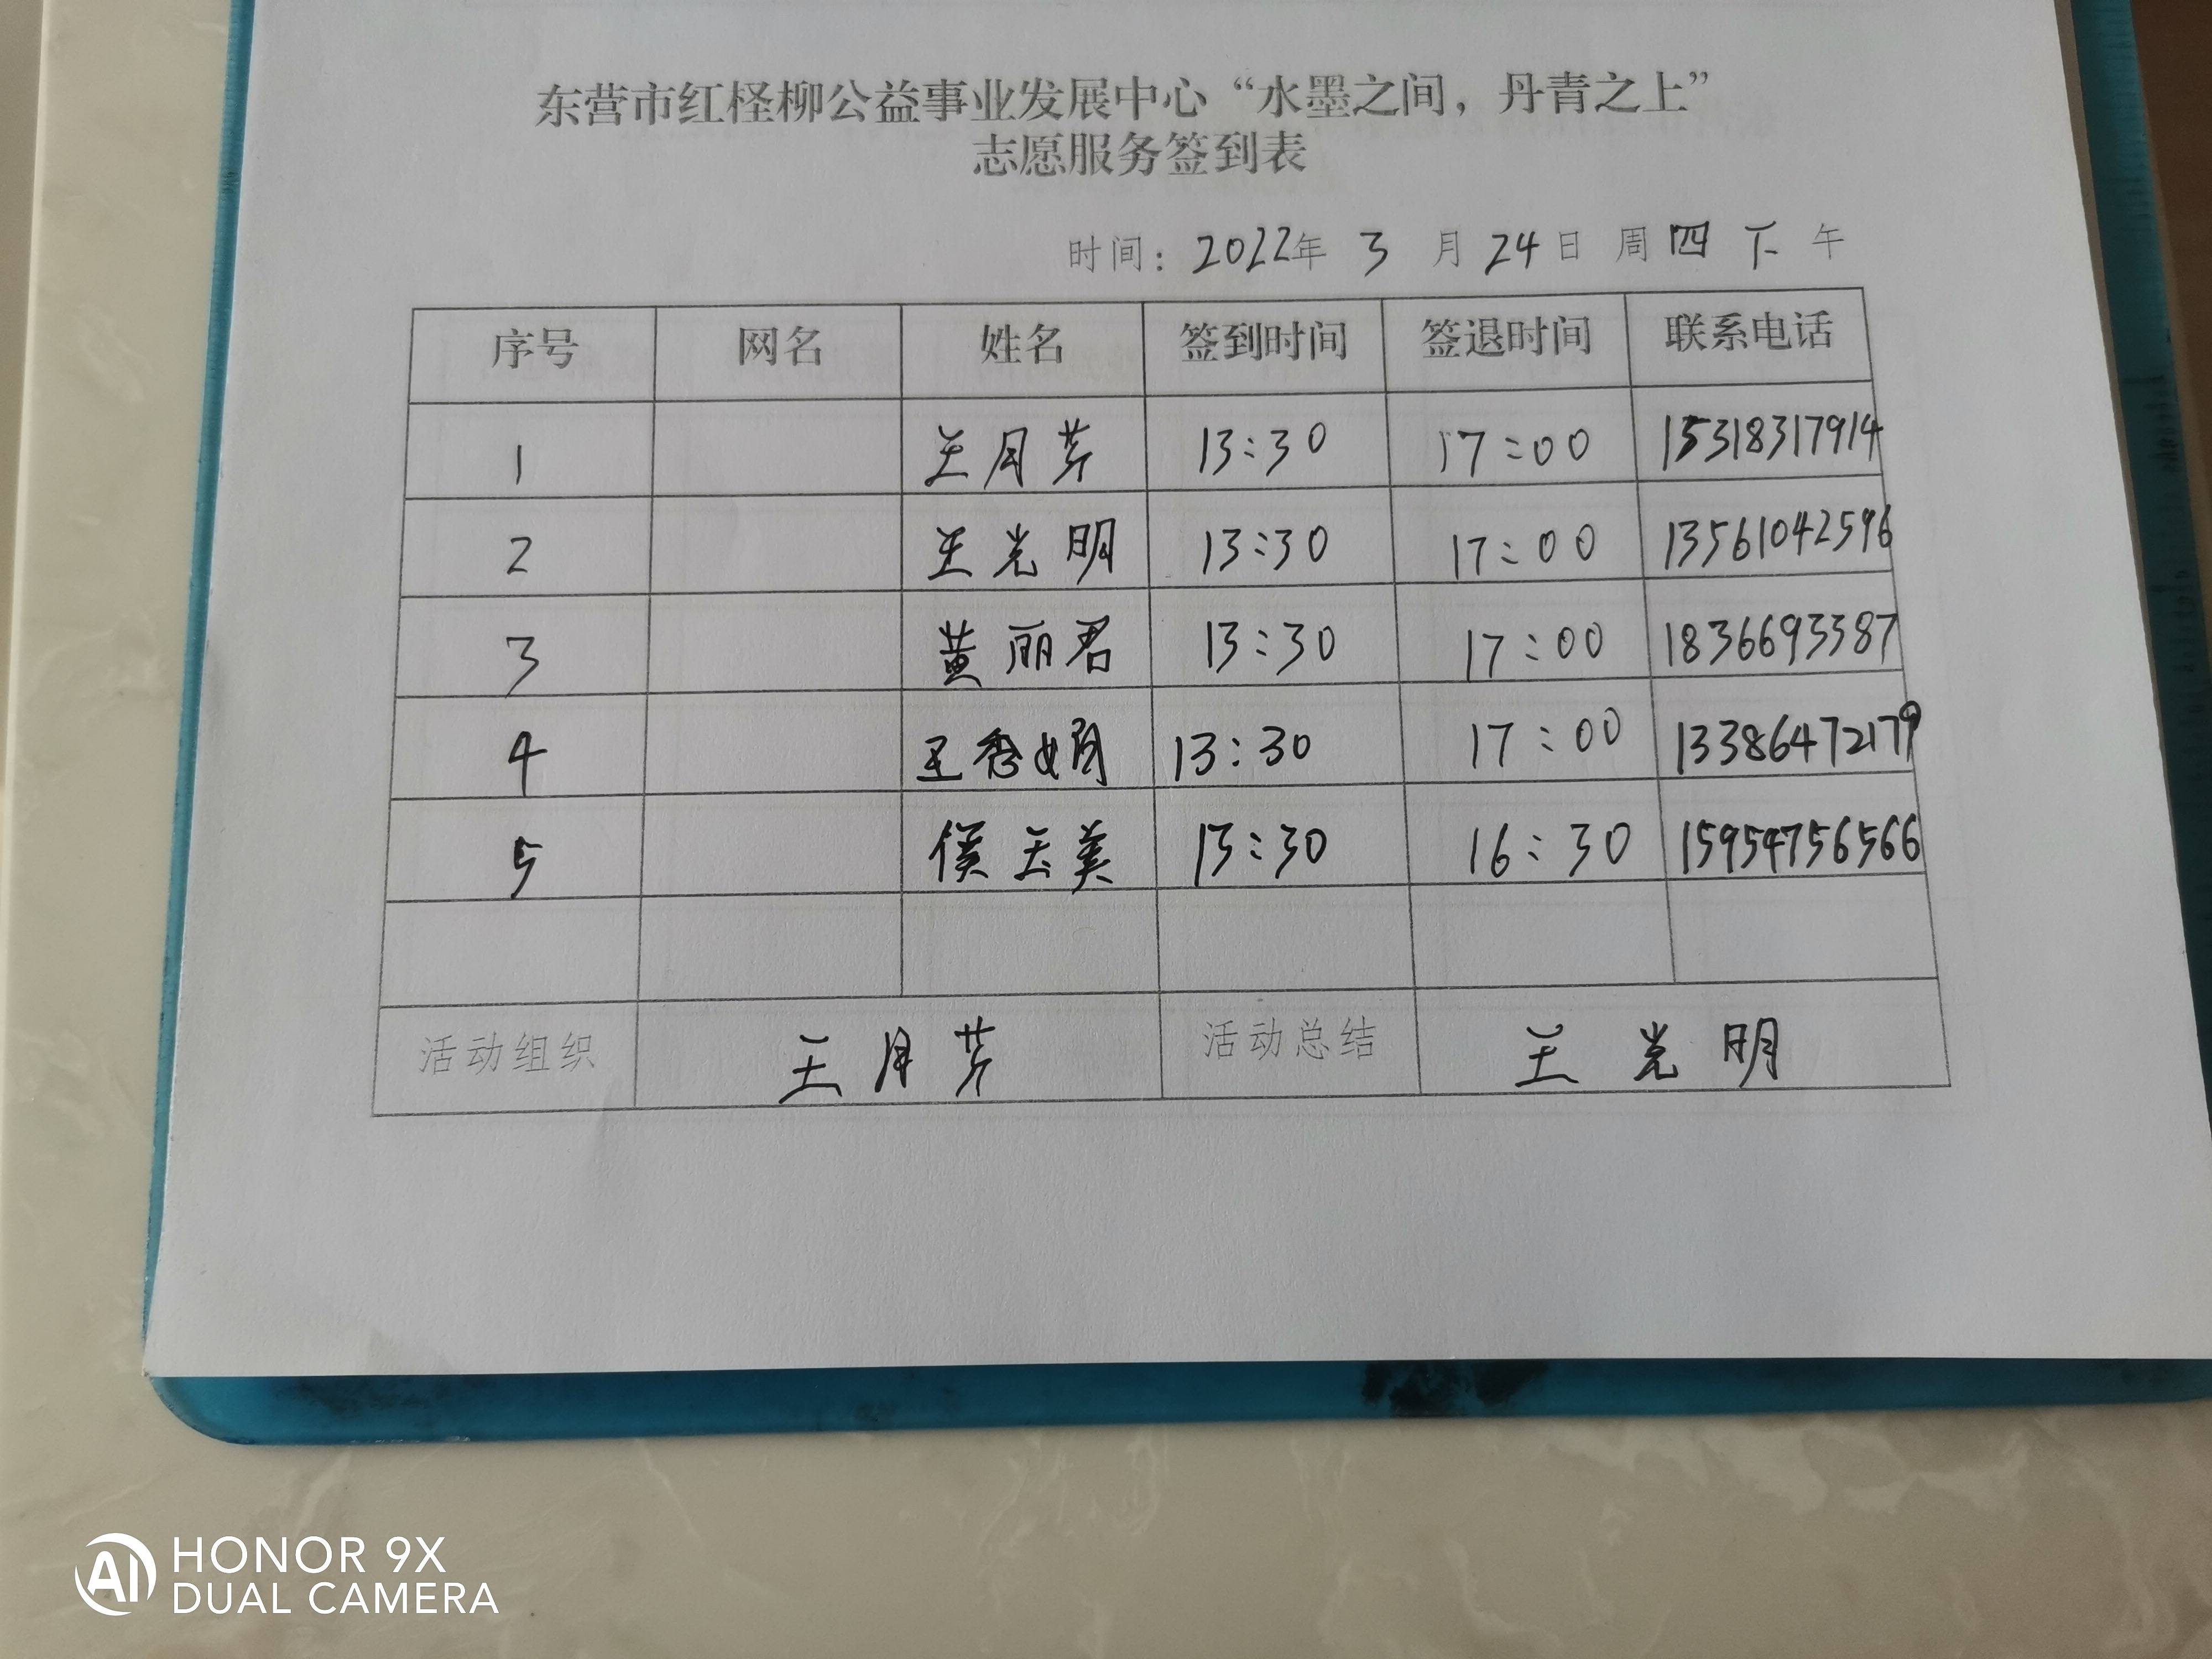 东营市红柽柳公益事业发展中心“水墨之间，丹青之上”
志愿服务签到表
时间：2022年 3 月 24 日 周 四 下 午
序号 网名 姓名 签到时间 签退时间 联系电话
1 王月芹 13:30 17:00 15318317914
2 王光明 13:30 17:00 13561042596
3 黄丽君 13:30 17:00 1836693387
4 王秀娟 13:30 17:00 13386472179
5 侯玉美 13:30 16:30 15954756566
活动组织 王月芹 活动总结 王光明
AI HONOR 9X
DUAL CAMERA